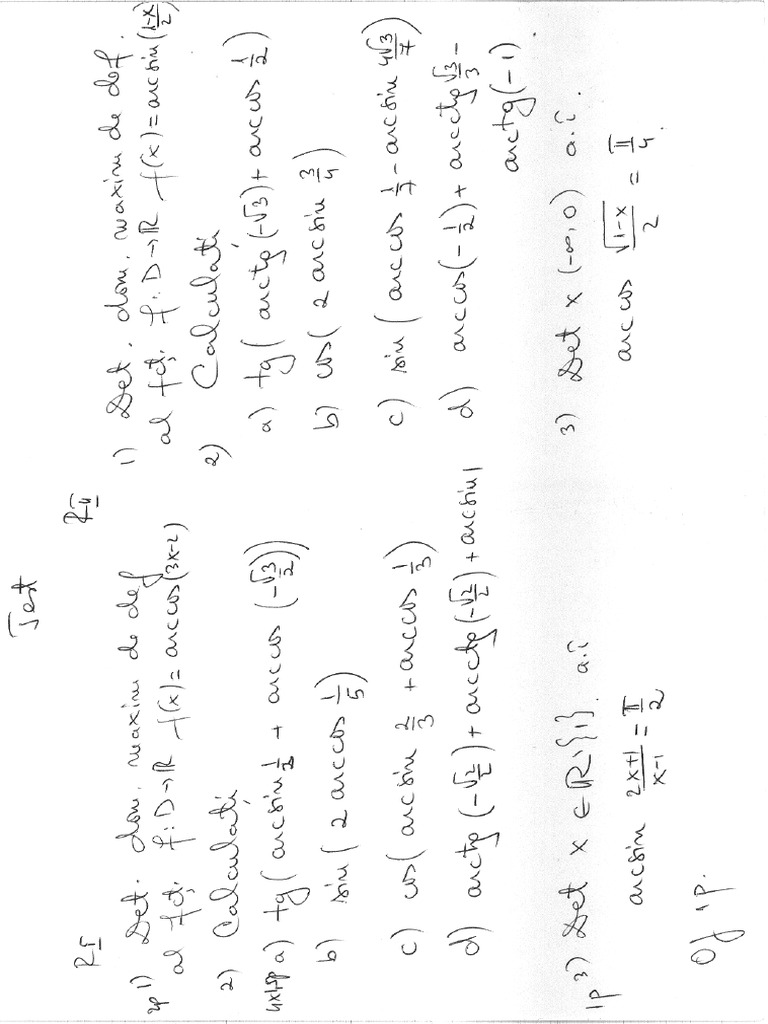 Test
R I
2p 1) Det. dom. maxim de def
al fct. f: D→R f(x)= arccos(3x-2)
2) Calculati
4x1,5p a) tg(arcsin 1/2 + arccos (-√3/2))
b) sin(2 arccos 1/5)
c) cos(arcsin 2/3 + arccos 1/3)
d) arctg(-√2/2) + arcctg(-√2/2) + arcsin 1
1p 3) Det x ∈ R\{1}. a.î
arcsin (2x+1)/(x-1) = π/2
Of 1p.
R II
1) Det. dom. maxim de def.
al fct. f: D→R f(x)=arcsin((1-x)/2)
2) Calculati
a) tg(arctg(-√3)+ arccos 1/2)
b) cos(2 arcsin 3/4)
c) sin(arccos 1/7 - arcsin 4√3/7)
d) arccos(-1/2)+ arcctg √3/3 -
arctg(-1)
3) Det x (-∞,0) a.î.
arccos √(1-x)/2 = π/4.